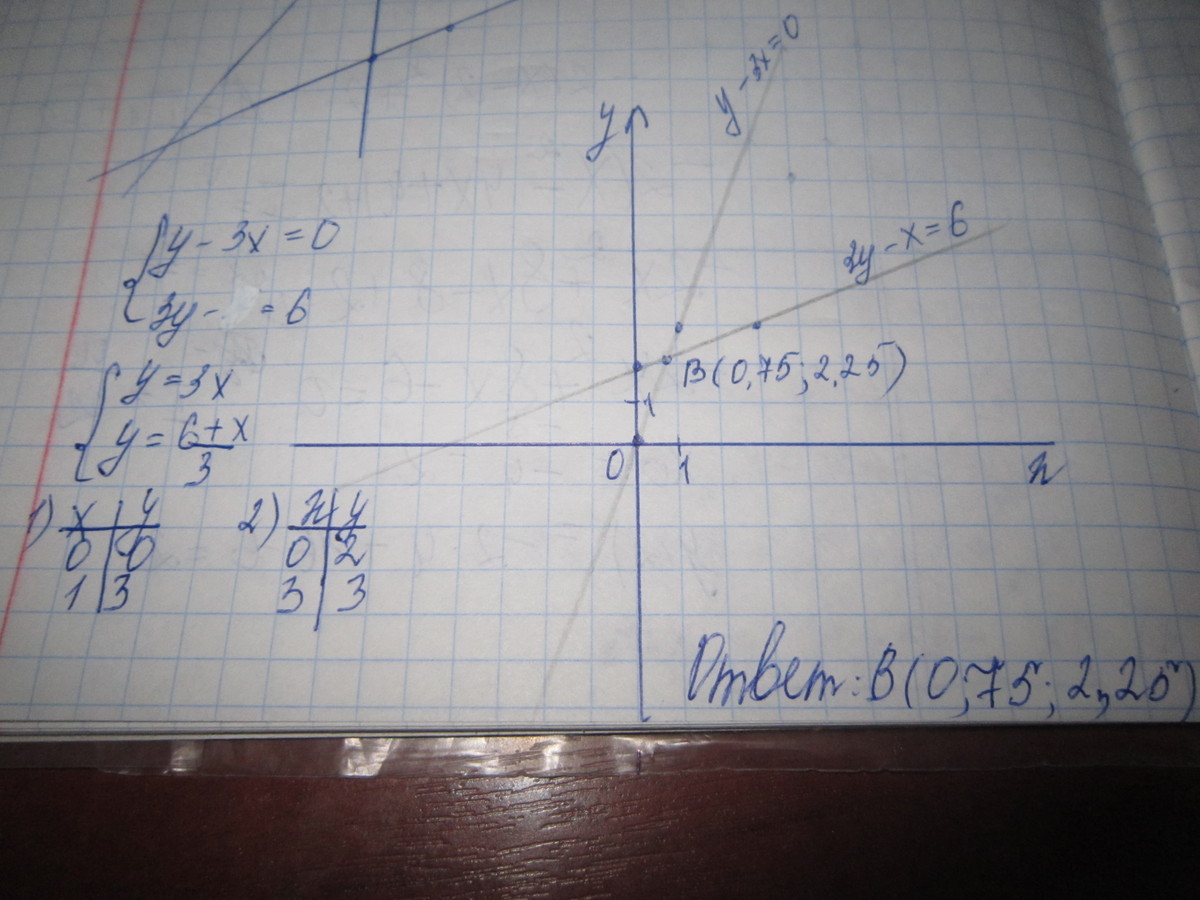 y - 3x = 0
3y - = 6
y = 3x
y = 6 + x
3
1) x y
0 0
1 3
2) x y
0 2
3 3
y
y - 3x = 0
3y - x = 6
B(0,75; 2,25)
1
0
1
x
Ответ: B(0,75; 2,25)